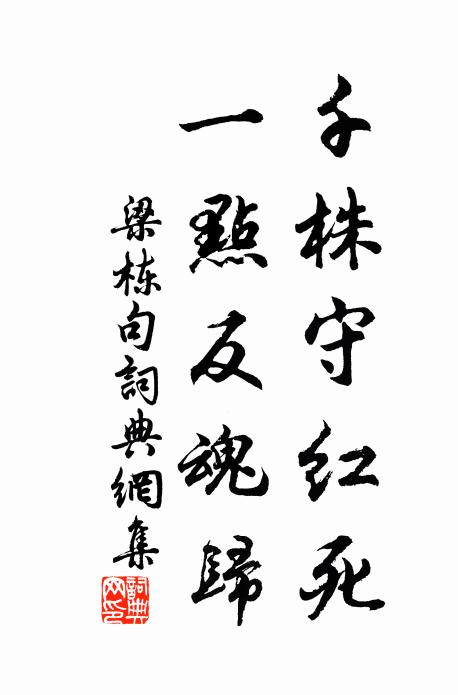 千株守红死
一點反魂歸
梁栋句詞典網集
詞典网印